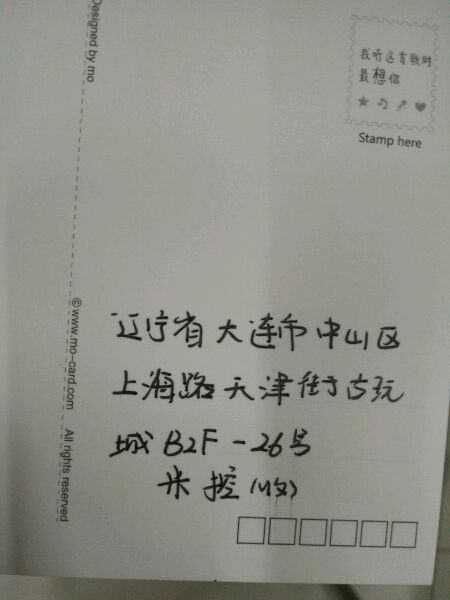 Designed by mo
我听这首歌时
最想你
Stamp here
©www.mo-card.com All rights reserved
辽宁省大连市中山区
上海路天津街古玩
城B2F-26号
米控(收)